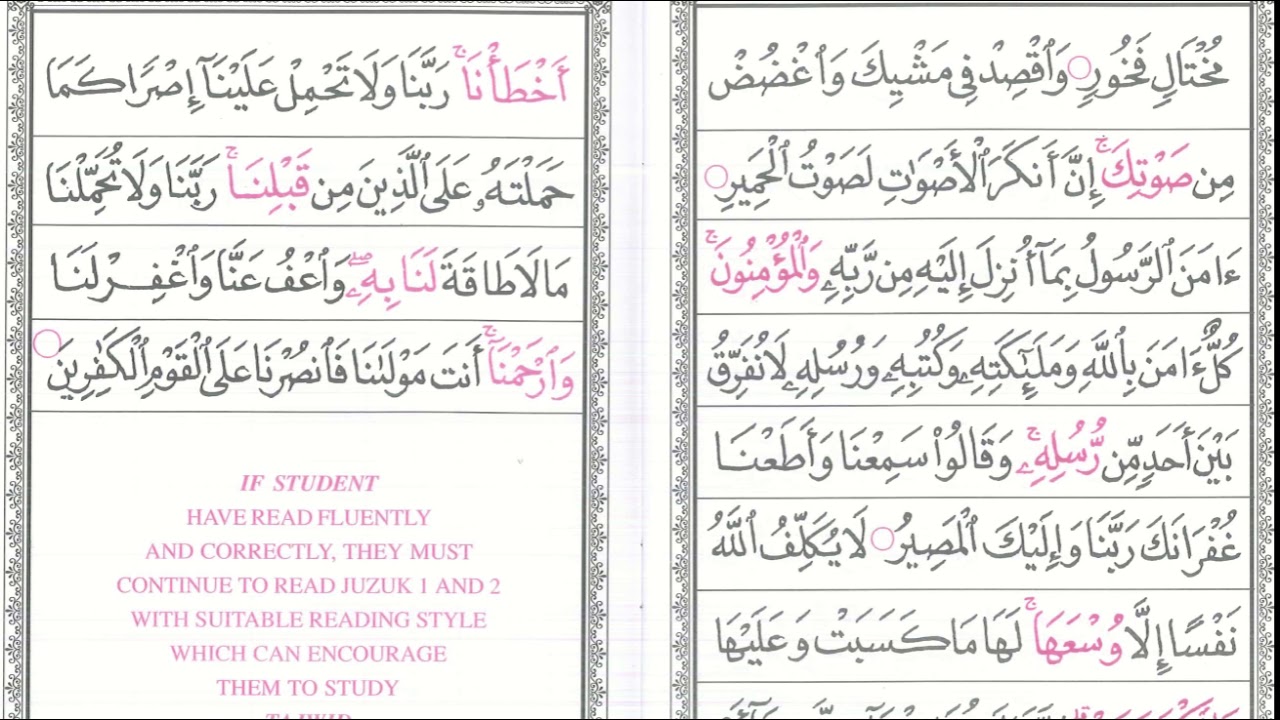 مُخْتَالٍ فَخُورٍ ○ وَٱقْصِدْ فِى مَشْيِكَ وَٱغْضُضْ
مِن صَوْتِكَ ۚ إِنَّ أَنكَرَ ٱلْأَصْوَٰتِ لَصَوْتُ ٱلْحَمِيرِ ○
ءَامَنَ ٱلرَّسُولُ بِمَآ أُنزِلَ إِلَيْهِ مِن رَّبِّهِۦ وَٱلْمُؤْمِنُونَ ۚ
كُلٌّ ءَامَنَ بِٱللَّهِ وَمَلَٰٓئِكَتِهِۦ وَكُتُبِهِۦ وَرُسُلِهِۦ لَا نُفَرِّقُ
بَيْنَ أَحَدٍ مِّن رُّسُلِهِۦ ۚ وَقَالُوا۟ سَمِعْنَا وَأَطَعْنَا
غُفْرَانَكَ رَبَّنَا وَإِلَيْكَ ٱلْمَصِيرُ ○ لَا يُكَلِّفُ ٱللَّهُ
نَفْسًا إِلَّا وُسْعَهَا ۚ لَهَا مَا كَسَبَتْ وَعَلَيْهَا
أَخْطَأْنَا ۚ رَبَّنَا وَلَا تَحْمِلْ عَلَيْنَآ إِصْرًا كَمَا
حَمَلْتَهُۥ عَلَى ٱلَّذِينَ مِن قَبْلِنَا ۚ رَبَّنَا وَلَا تُحَمِّلْنَا
مَا لَا طَاقَةَ لَنَا بِهِۦ ۖ وَٱعْفُ عَنَّا وَٱغْفِرْ لَنَا
وَٱرْحَمْنَآ ۚ أَنتَ مَوْلَىٰنَا فَٱنصُرْنَا عَلَى ٱلْقَوْمِ ٱلْكَٰفِرِينَ ○
IF STUDENT
HAVE READ FLUENTLY
AND CORRECTLY, THEY MUST
CONTINUE TO READ JUZUK 1 AND 2
WITH SUITABLE READING STYLE
WHICH CAN ENCOURAGE
THEM TO STUDY